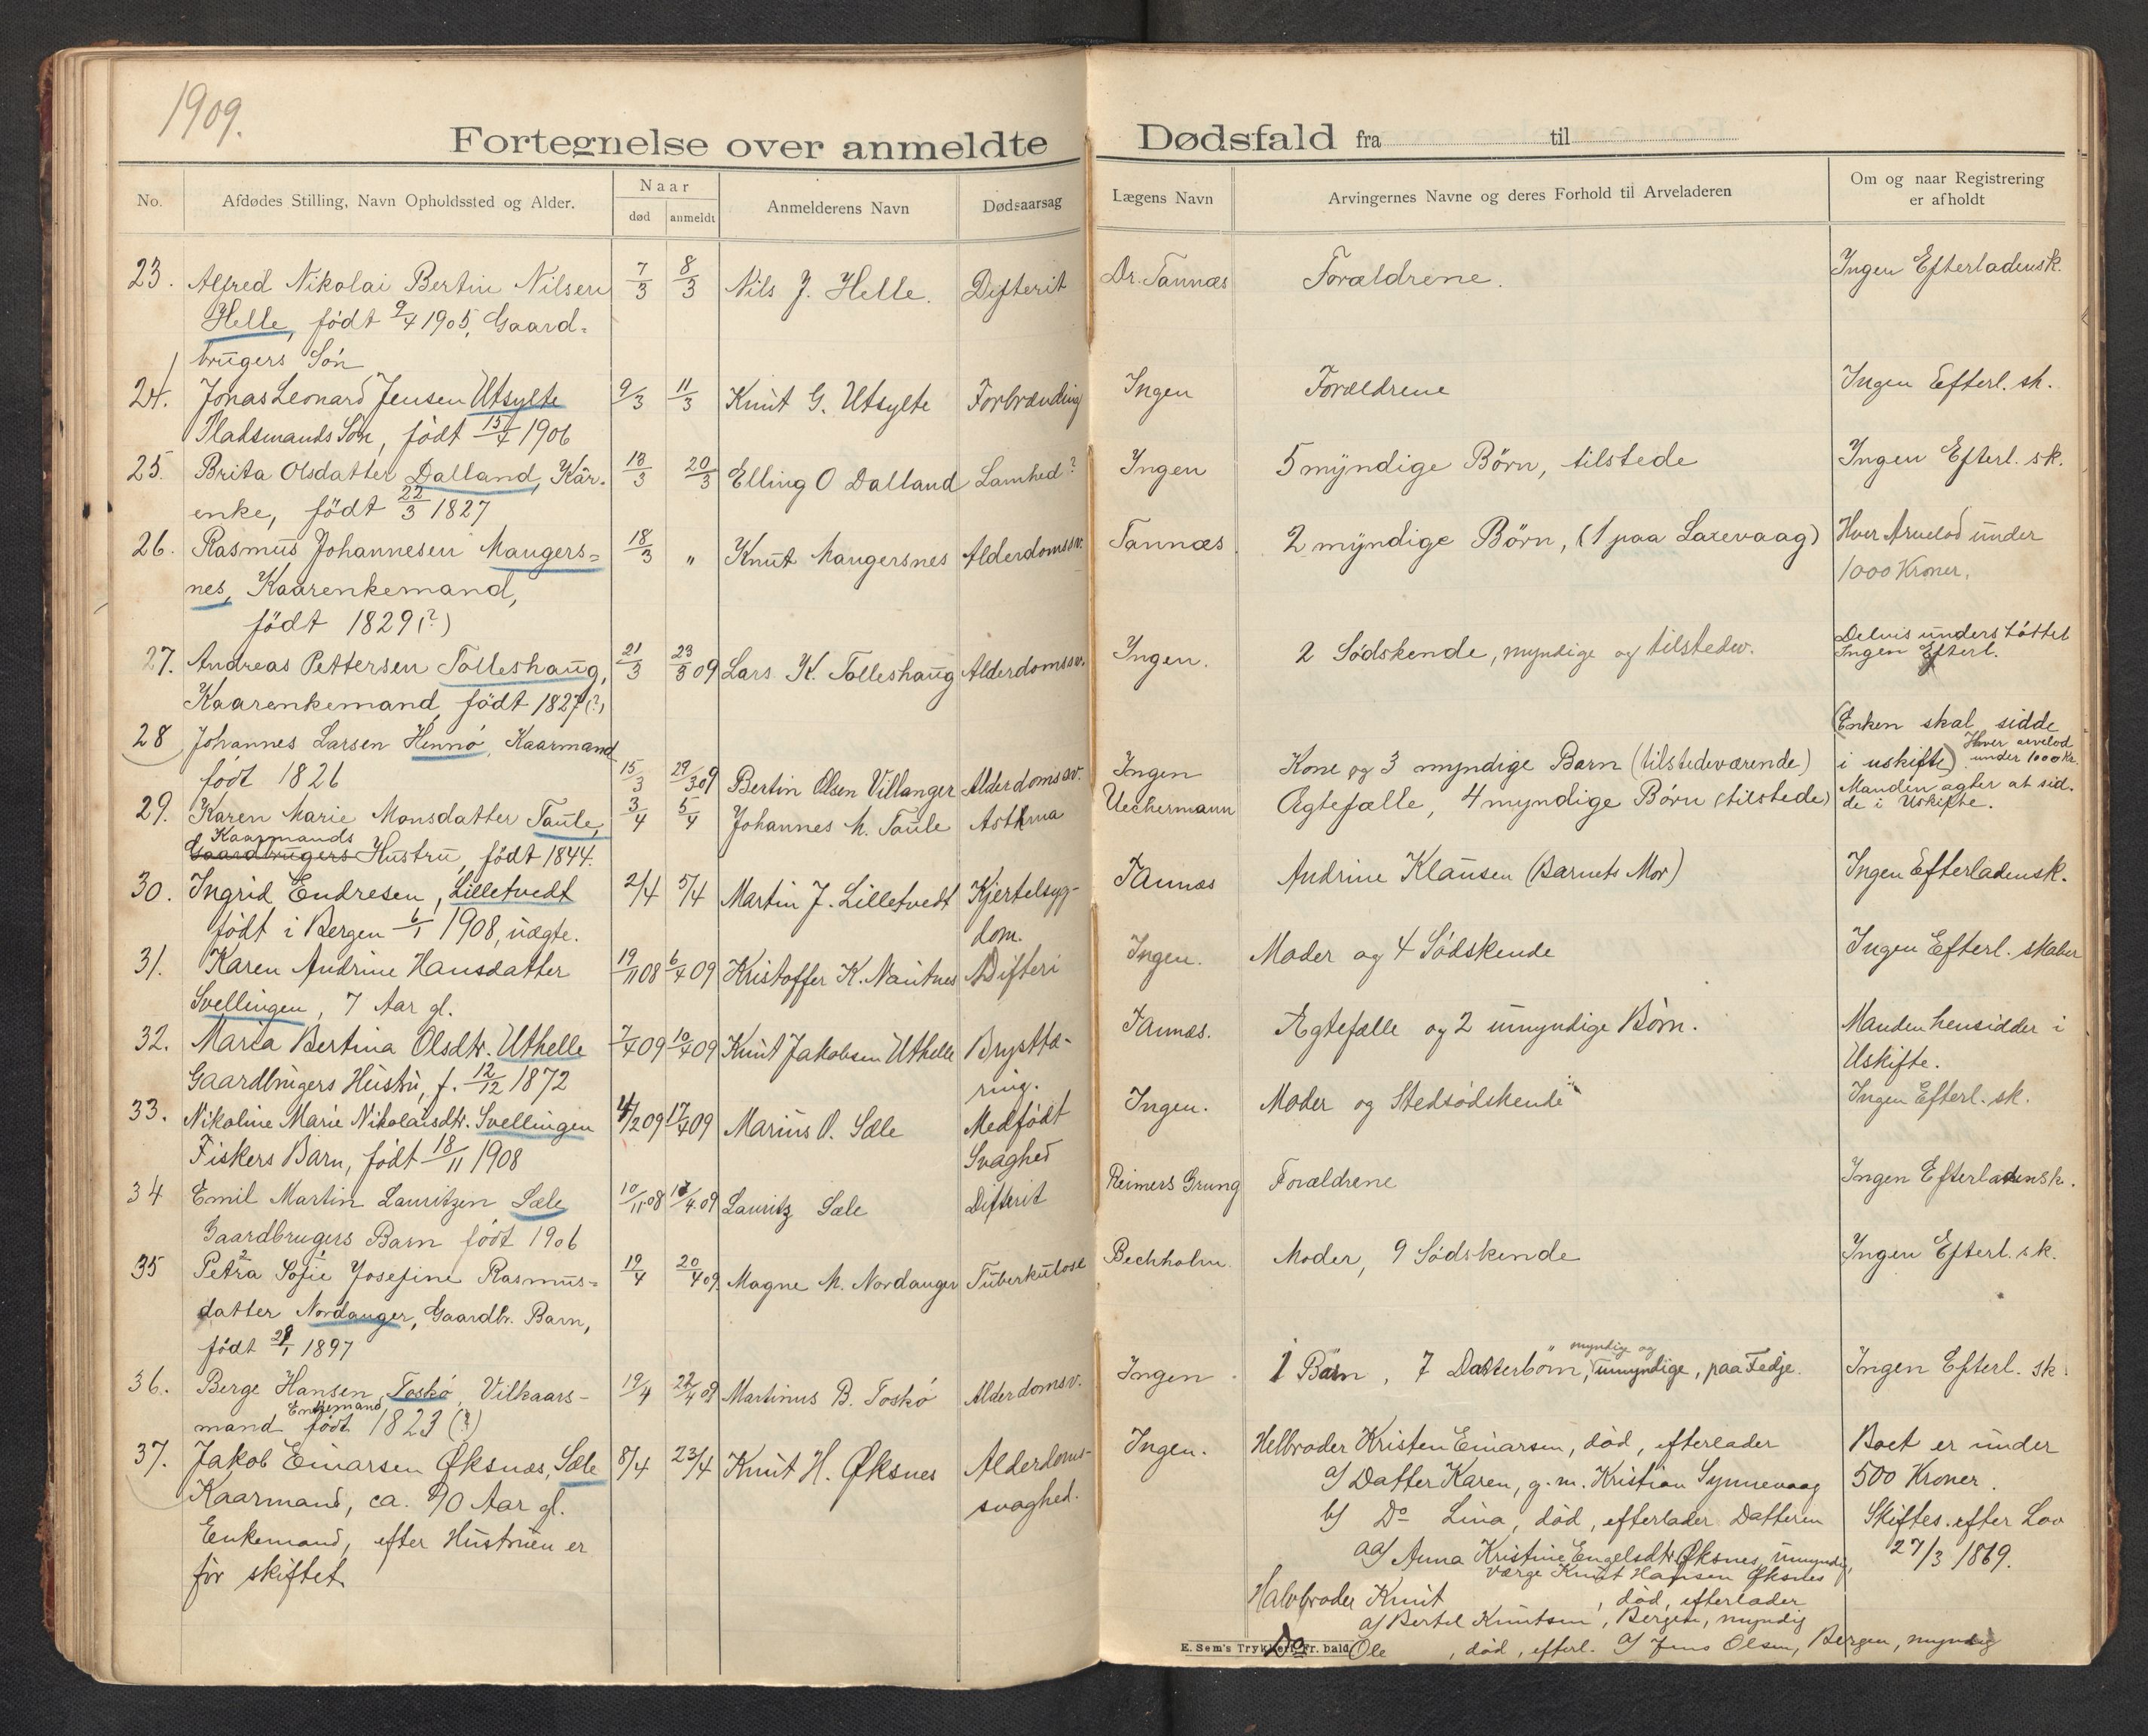 1909.
Fortegnelse over anmeldte Dødsfald fra til
No.
Afdødes Stilling, Navn Opholdssted og Alder.
Naar
død
anmeldt
Anmelderens Navn
Dødsaarsag
Lægens Navn
Arvingernes Navne og deres Forhold til Arveladeren
Om og naar Registrering
er afholdt
23. Alfred Nikolai Bertin Nilsen 7/3 8/3 Nils J. Helle. Difterit Dr. Tannæs Forældrene. Ingen Efterladensk.
Helle, født 9/4 1905, Gaard-
brugers Søn
24. Jonas Leonard Jensen Utsylte 9/3 11/3 Knut G. Utsylte Forbrænding Ingen Forældrene Ingen Efterl. sk.
Pladsmands Søn, født 15/4 1906
25. Brita Olsdatter Dalland, Kår- 13/3 20/3 Elling O Dalland Lamhed? Ingen 5 myndige Børn, tilstede Ingen Efterl. sk.
enke, født 22/3 1827
26. Rasmus Johannesen Mangers- 18/3 " Knut Mangersnes Alderdomssv. Tannæs 2 myndige Børn, (1 paa Laxevaag) Hver Arvelod under
nes, Kaarenkemand, 1000 Kroner.
født 1829(?)
27. Andreas Pettersen Tolleshaug, 21/3 23/3 09 Lars K. Tolleshaug Alderdomssv. Ingen. 2 Södskende, myndige og tilstedev. Delvis understöttet
Ingen Efterl.
Kaarenkemand, født 1827(?)
28 Johannes Larsen Hennö, Kaarmand (Enken skal sidde
født 1826 15/3 29/3 09 Bertin Olsen Villanger Alderdomssv. Ingen Kone og 3 myndige Barn (tilstedeværende) i uskifte) Hver arvelod
under 1000 Kr.
29. Karen Marie Monsdatter Taule, 3/4 5/4 Johannes M. Taule Asthma Uechermann Ægtefælle, 4 myndige Börn (tilstede) Manden agter at sid-
de i Uskifte.
Kaarmands
Gaardbrugers Hustru, født 1844.
30. Ingrid Endresen, Lilletvedt 2/4 5/4 Martin J. Lilletvedt Kjertelsyg- Tannæs Andrine Klausen (Barnets Mor) Ingen Efterladensk.
født i Bergen 6/1 1908, uægte. dom.
31. Karen Andrine Hansdatter 19/11 08 6/4 09 Kristoffer K. Nautnes Difteri Ingen. Moder og 4 Södskende Ingen Efterl. skaber
Svellingen, 7 Aar gl.
32. Maria Bertina Olsdtr. Uthelle 7/4 09 10/4 09 Knut Jakobsen Uthelle Brysttæ- Tannæs. Ægtefælle og 2 umyndige Börn. Manden hensidder i
Gaardbrugers Hustru, f. 12/12 1872 ring. Uskifte.
33. Nikoline Marie Nikolaisdtr. Svellingen 4/2 09 17/4 09 Marius O. Sæle Medfödt Ingen. Moder og Stedsödskende Ingen Efterl. sk.
Fiskers Barn, födt 18/11 1908 Svaghed
34 Emil Martin Lauritzen Sæle 10/11 08 17/4 09 Lauritz Sæle Difterit Reimers Grung Forældrene Ingen Efterladensk.
Gaardbrugers Barn födt 1906
35 Petra Sofie Josefine Rasmus- 19/4 20/4 09. Magne M. Nordanger Tuberkulose Bechholm. Moder, 9 Södskende Ingen Efterl. sk.
datter Nordanger, Gaardbr. Barn,
födt 29/1 1897
36. Berge Hansen, Toskö, Vilkaars- 19/4 22/4 09 Martinus B. Toskö Alderdomsv. Ingen 1 Barn, 7 Datterbörn, myndig og umyndige, paa Fedje. Ingen Efterl. sk.
Enkemand
mand födt 1823 (?)
37. Jakob Einarsen Øksnæs, Sæle 8/4 23/4 Knut H. Øksnes Alderdoms- Ingen. Helbroder Kristen Einarsen, död, efterlader Boet er under
svaghed. a) Datter Karen, g.m. Kristian Synnevaag 500 Kroner.
Kaarmand, ca. 90 Aar gl. b) Do Lina, död, efterlader Datteren Skiftes efter Lov
Enkemand, efter Hustruen er aa) Anna Kristine Engelsdtr Øksnes, umyndig, 27/3 1869.
för skiftet Værge Knut Hansen Øksnes
Halvbroder Knut , död, efterlader
a) Bertel Knutsen, Bergen, myndig
E. Sem's Trykkeri, Fr.hald
Do Ole , död, efterl. a) Jens Olsen, Bergen, myndig